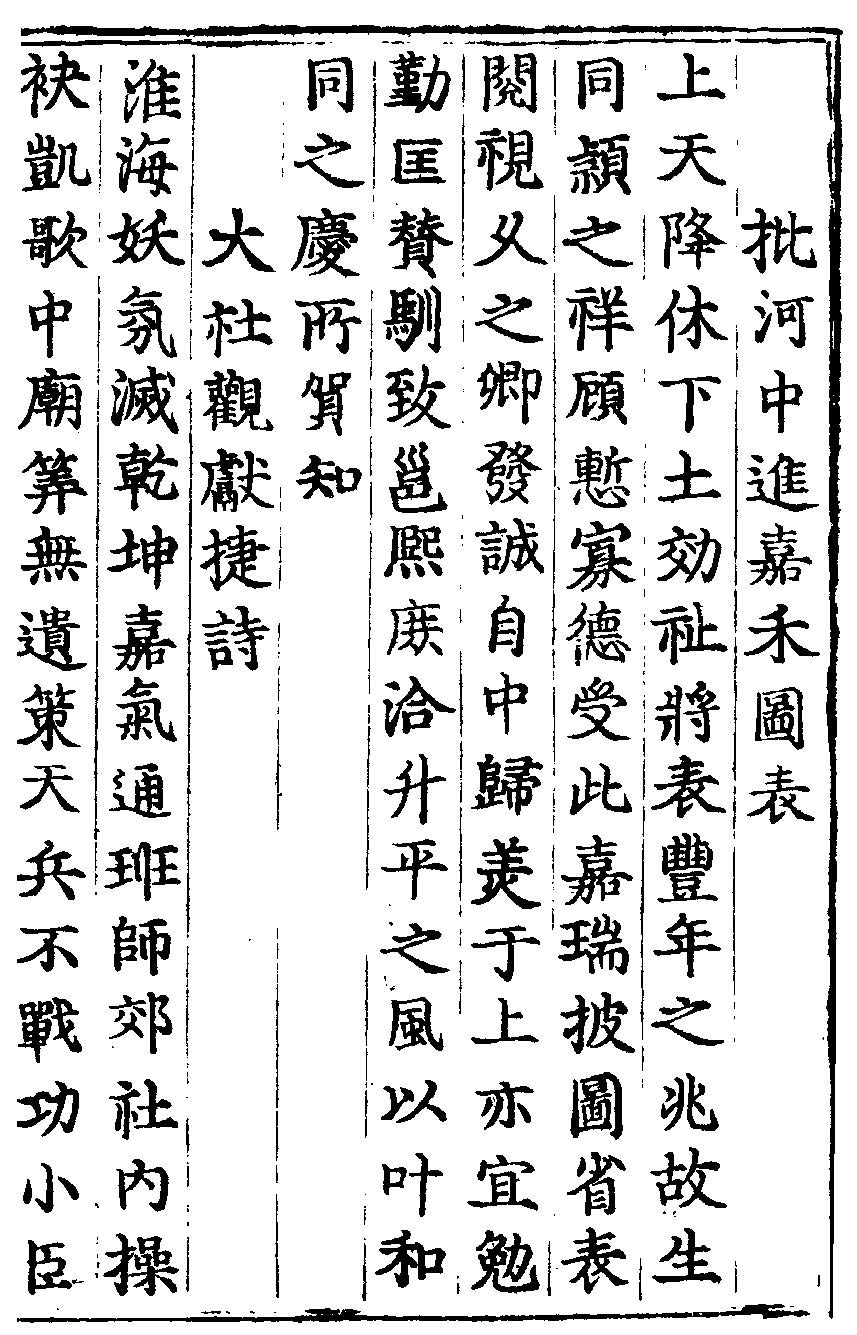 批河中進嘉禾圖表
上天降休下土効祉將表豐年之兆故生
同頴之祥顧慙寡德受此嘉瑞披圖省表
閱視久之卿發誠自中歸羙于上亦宜勉
勤匡賛馴致邕熙庻洽升平之風以叶和
同之慶所賀知
大杜觀獻捷詩
淮海妖氛滅乾坤嘉氣通班師郊社內操
袂凱歌中廟筭無遺策天兵不戰功小臣